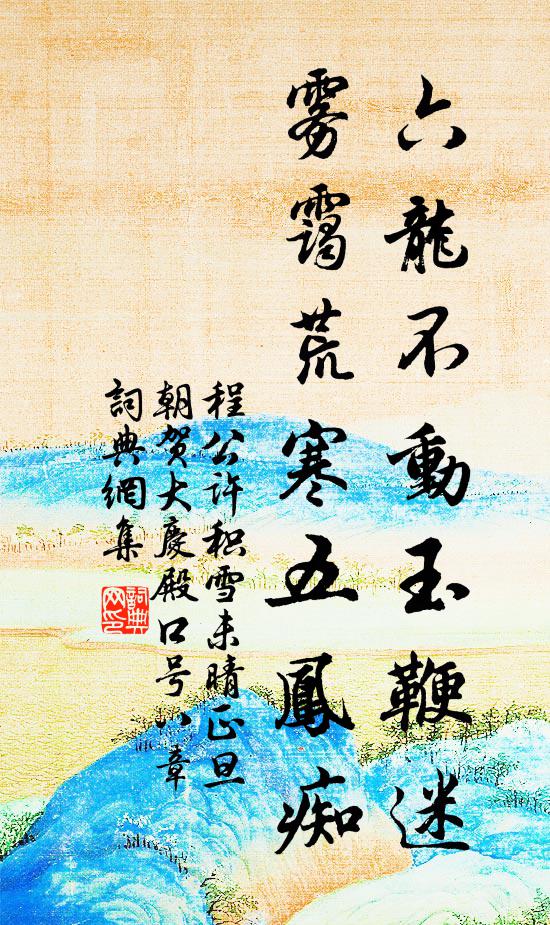 六龍不動玉鞭迷
雾靄荒寒五鳳痴
程公许积雪未晴正旦
朝贺大慶殿口号八章
詞典網集
詞典網印